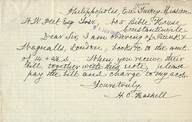 Philippopolis, Eur. Turkey Mission
H.W. Peet Esq. Treas. 105 Bible House
Constantinople
Dear Sir, I am ordering of
Magnalls, London, books to the amt.
of £4 = . When you receive their
bill, together with this note, please
pay the bill and charge to my acct.
Yours truly,
H.C. Haskell